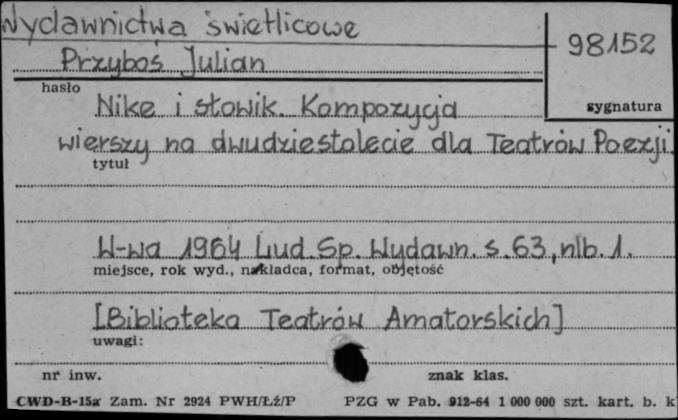 Wydawnictwa świetlicowe
98152
Przyboś Julian
hasło
sygnatura
Nike i słowik. Kompozycja
wierszy na dwudziestolecie dla Teatrów Poezji.
tytuł
W-wa 1964 Lud. Sp. Wydawn. s. 63, nlb. 1.
miejsce, rok wyd., nakładca, format, objętość
[Biblioteka Teatrów Amatorskich]
uwagi:
nr inw.
znak klas.
CWD-B-15a Zam. Nr 2924 PWH/Łź/P PZG w Pab. 912-64 1 000 000 szt. kart. b. k